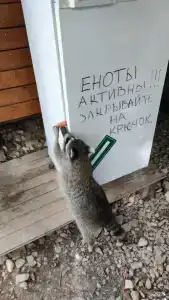 ЕНОТЫ
АКТИВНЫ!!!
ЗАКРЫВАЙТЕ
НА
КРЮЧОК.